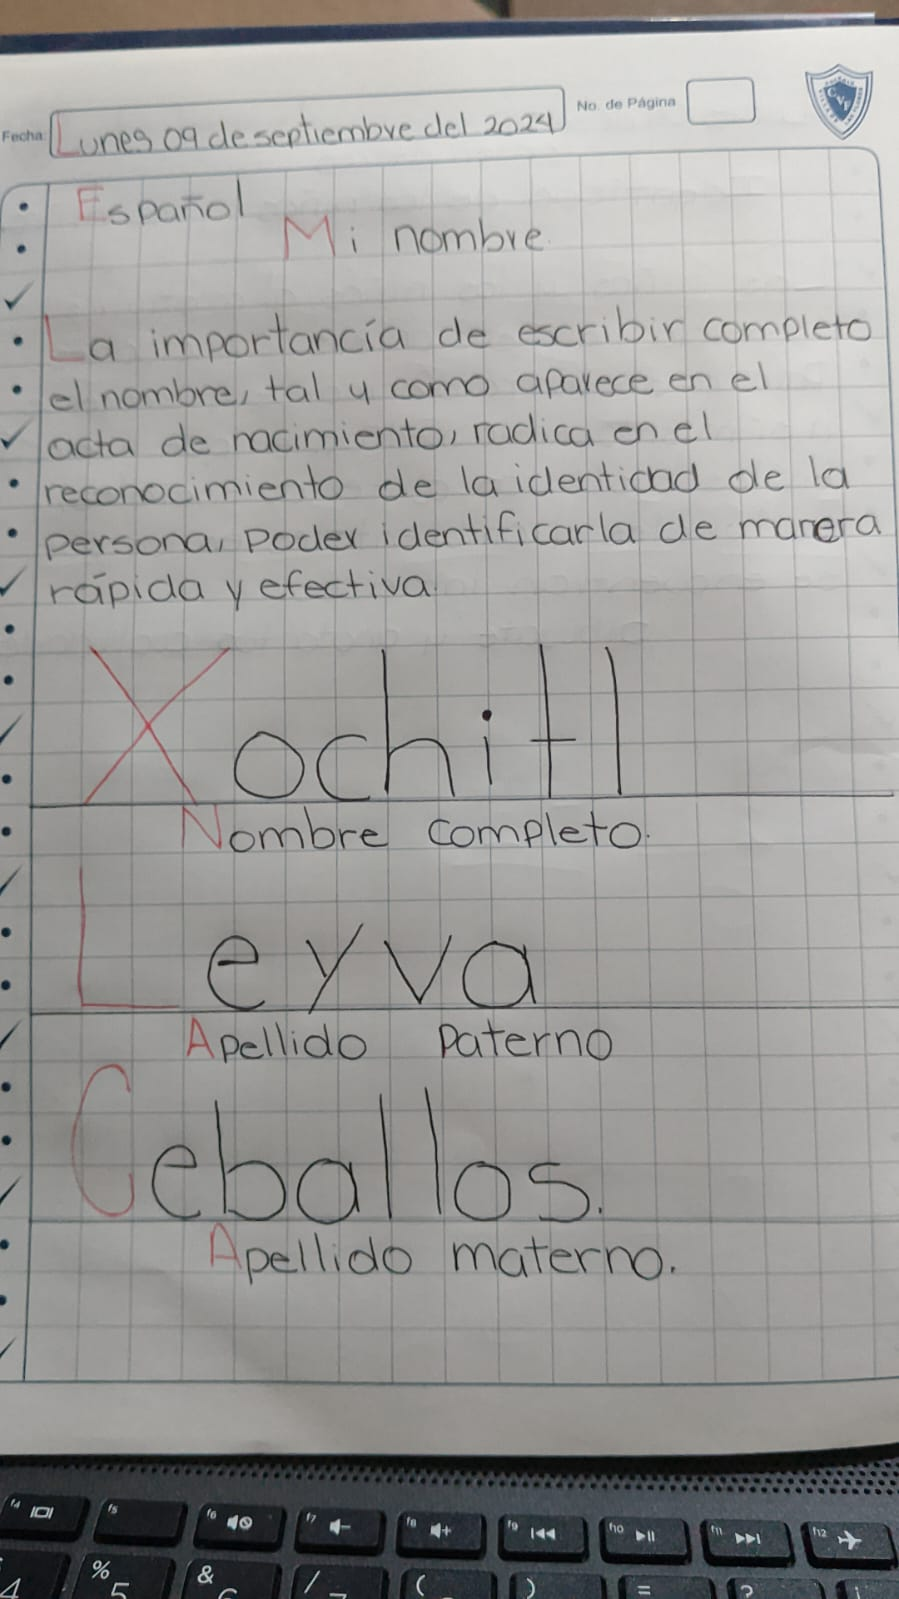 Fecha: Lunes 09 de septiembre del 2024
No. de Página
CVF
Español
Mi nombre
La importancía de escribir completo
el nombre, tal y como aparece en el
acta de nacimiento, radica en el
reconocimiento de la identidad de la
persona, poder identificarla de manera
rápida y efectiva.
Xochitl
Nombre completo.
Leyva
Apellido Paterno
Ceballos.
Apellido materno.
f4 f5 f6 f7 f8 f9 f10 f11 f12
4 % 5 & 6 / 7 ( ) = ?